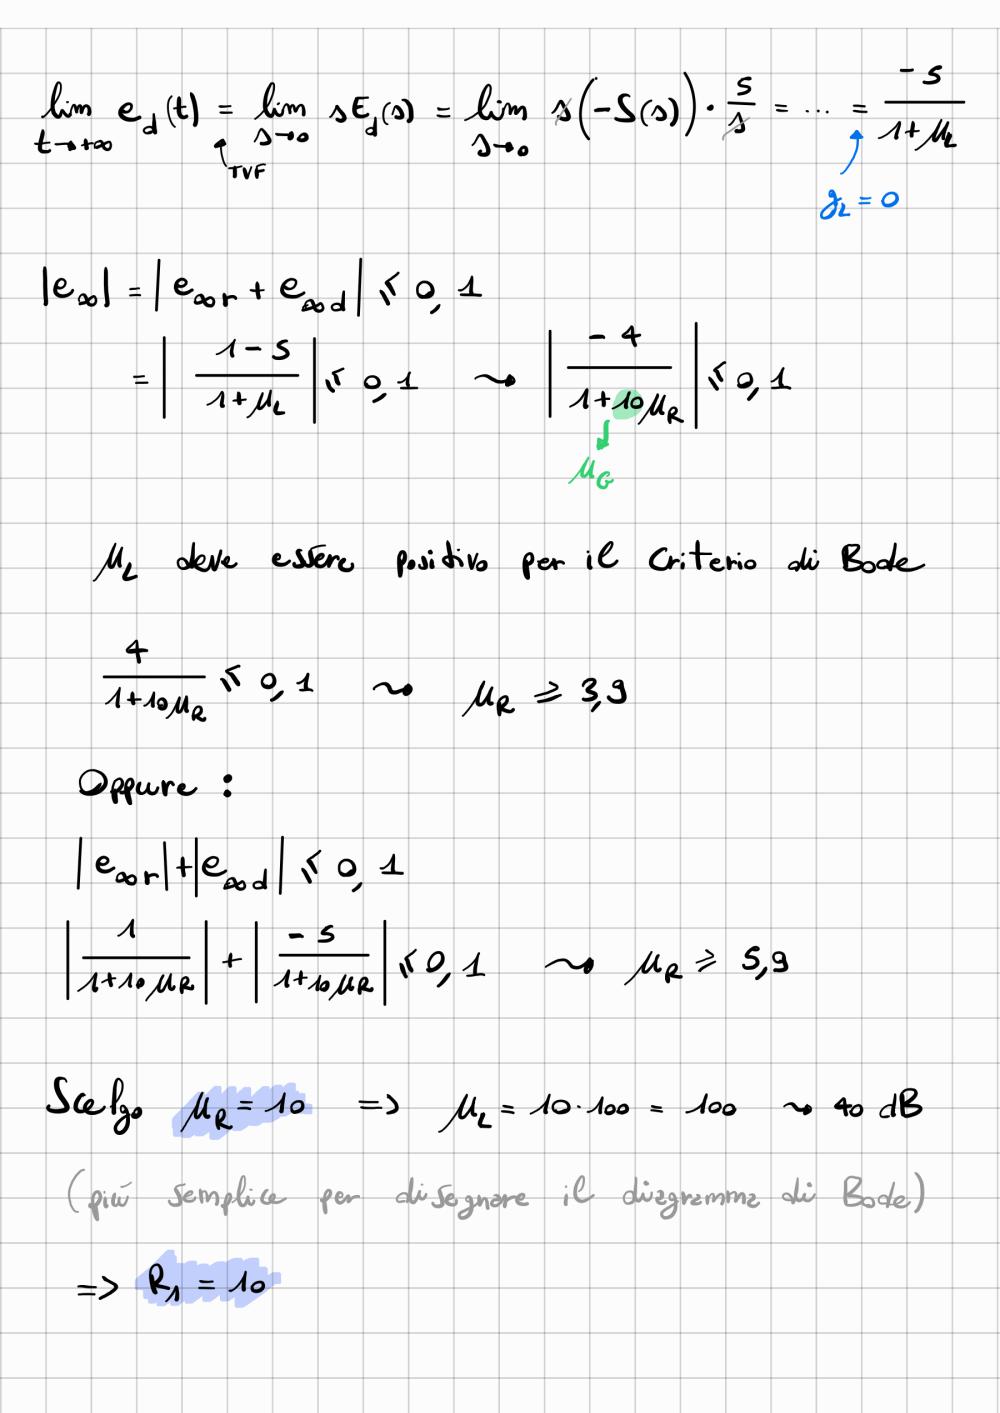 lim t→+∞ e_d(t) = lim s→0 sE_d(s) = lim s→0 s(-S(s)) · 5/s = ... = -5/(1+μ_L)
TVF
g_L = 0
|e_∞| = |e_∞r + e_∞d| ≤ 0,1
= |(1-5)/(1+μ_L)| ≤ 0,1 ⇝ |-4/(1+10μ_R)| ≤ 0,1
μ_G
μ_L deve essere positivo per il Criterio di Bode
4/(1+10μ_R) ≤ 0,1 ⇝ μ_R ≥ 3,9
Oppure :
|e_∞r|+|e_∞d| ≤ 0,1
|1/(1+10μ_R)| + |-5/(1+10μ_R)| ≤ 0,1 ⇝ μ_R ≥ 5,9
Scelgo μ_R = 10 => μ_L = 10·100 = 100 ⇝ 40 dB
(più semplice per disegnare il diagramma di Bode)
=> R_1 = 10